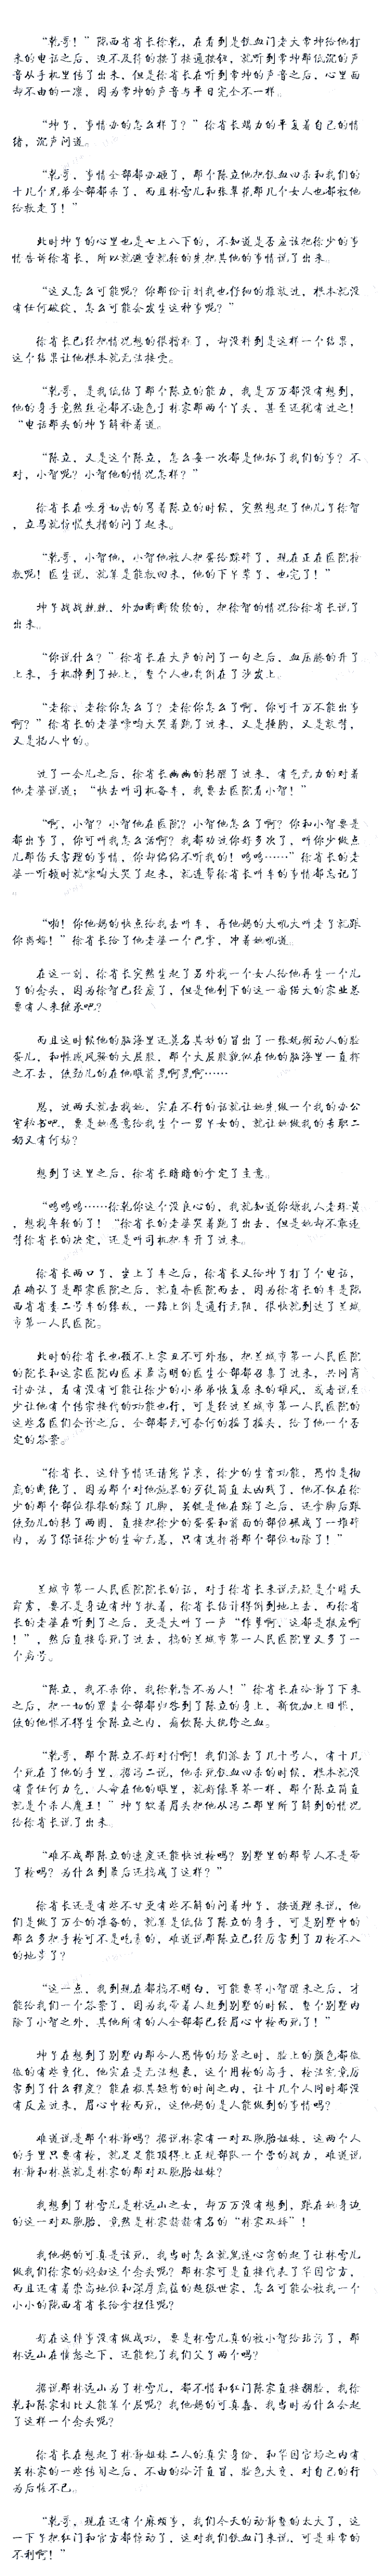 “乾哥！”陇西省省长徐乾，在看到是饮血门老大常坤给他打
来的电话之后，迫不及待的按了接通按钮，就听到常坤那低沉的声
音从手机里传了出来，但是徐省长在听到常坤的声音之后，心里面
却不由的一凛，因为常坤的声音与平日完全不一样。
“坤子，事情办的怎么样了？”徐省长竭力的平复着自己的情
绪，沉声问道。
“乾哥，事情全部都办砸了，那个陈立他把饮血四杀和我们的
十几个兄弟全部都杀了，而且林雪儿和张翠花那几个女人也都被他
给救走了！”
此时坤子的心里也是七上八下的，不知道是否应该把徐少的事
情告诉徐省长，所以就避重就轻的先把其他的事情说了出来。
“这又怎么可能呢？你那份计划我也仔细的推敲过，根本就没
有任何破绽，怎么可能会发生这种事呢？”
徐省长已经把情况想的很糟糕了，却没料到是这样一个结果，
这个结果让他根本就无法接受。
“乾哥，是我低估了那个陈立的能力，我是万万都没有想到，
他的身手竟然丝毫都不逊色于林家那两个丫头，甚至还犹有过之！
”电话那头的坤子解释着道。
“陈立，又是这个陈立，怎么每一次都是他坏了我们的事？不
对，小智呢？小智他的情况怎样？”
徐省长在咬牙切齿的骂着陈立的时候，突然想起了他儿子徐智
，立马就惊慌失措的问了起来。
“乾哥，小智他，小智他被人把蛋给踩碎了，现在正在医院抢
救呢！医生说，就算是能救回来，他的下半辈子，也完了！”
坤子战战兢兢，外加断断续续的，把徐智的情况给徐省长说了
出来。
“你说什么？”徐省长在大声的问了一句之后，血压腾的升了
上来，手机掉到了地上，整个人也栽倒在了沙发上。
“老徐，老徐你怎么了？老徐你怎么了啊，你可千万不能出事
啊？”徐省长的老婆嚎啕大哭着跑了过来，又是捶胸，又是敲背，
又是掐人中的。
过了一会儿之后，徐省长幽幽的转醒了过来，有气无力的对着
他老婆说道：“快去叫司机备车，我要去医院看小智！”
“啊，小智？小智他在医院？小智他怎么了啊？你和小智要是
都出事了，你可叫我怎么活啊？我都劝过你好多次了，叫你少做点
儿那伤天害理的事情，你却偏偏不听我的！呜呜……”徐省长的老
婆一听顿时就嚎啕大哭了起来，就连帮徐省长叫车的事情都忘记了
。
“啪！你他妈的快点给我去叫车，再他妈的大吼大叫老子就跟
你离婚！”徐省长给了他老婆一个巴掌，冲着她吼道。
在这一刻，徐省长突然生起了另外找一个女人给他再生一个儿
子的念头，因为徐智已经废了，但是他创下的这一番偌大的家业总
要有人来继承吧？
而且这时候他的脑海里还莫名其妙的冒出了一张妩媚动人的脸
蛋儿，和性感风骚的大屁股，那个大屁股貌似在他的脑海里一直挥
之不去，使劲儿的在他眼前晃啊晃啊……
恩，过两天就去找她，实在不行的话就让她先做一个我的办公
室秘书吧，要是她愿意给我生个一男半女的，就让她做我的专职二
奶又有何妨？
想到了这里之后，徐省长暗暗的拿定了主意。
“呜呜呜……徐乾你这个没良心的，我就知道你嫌我人老珠黄
，想找年轻的了！“徐省长的老婆哭着跑了出去，但是她却不敢违
背徐省长的决定，还是叫司机把车开了过来。
徐省长两口子，坐上了车之后，徐省长又给坤子打了个电话，
在确认了是那家医院之后，就直奔医院而去，因为徐省长的车是陇
西省省委二号车的缘故，一路上倒是通行无阻，很快就到达了兰城
市第一人民医院。
此时的徐省长也顾不上家丑不可外扬，把兰城市第一人民医院
的院长和这家医院内医术最高明的医生全部都召集了过来，共同商
讨办法，看有没有可能让徐少的小弟弟恢复原来的雄风，或者说至
少让他有个传宗接代的功能也行，可是经过兰城市第一人民医院的
这些名医们会诊之后，全部都无可奈何的摇了摇头，给了他一个否
定的答案。
“徐省长，这件事情还请您节哀，徐少的生育功能，恐怕是彻
底的断绝了，因为那个对他施暴的歹徒简直太凶残了，他不仅在徐
少的那个部位狠狠的踩了几脚，关键是他在踩了之后，还拿脚后跟
使劲儿的转了两圈，直接把徐少的蛋蛋和前面的部位碾成了一堆碎
肉，为了保证徐少的生命无恙，只有选择将那个部位切除了！”
兰城市第一人民医院院长的话，对于徐省长来说无疑是个晴天
霹雳，要不是身边有坤子扶着，徐省长估计得倒到地上去，而徐省
长的老婆在听到了之后，更是大叫了一声“作孽啊，这都是报应啊
！”，然后直接昏死了过去，搞的兰城市第一人民医院里又多了一
个病号。
“陈立，我不杀你，我徐乾誓不为人！”徐省长在冷静了下来
之后，把一切的罪责全部都归咎到了陈立的身上，新仇加上旧恨，
使的他恨不得生食陈立之肉，痛饮陈大统帅之血。
“乾哥，那个陈立不好对付啊！我们派去了几十号人，有十几
个死在了他的手里，据冯二说，他杀死饮血四杀的时候，根本就没
有费任何力气，人命在他的眼里，就好像草芥一样，那个陈立简直
就是个杀人魔王！”坤子皱着眉头把他从冯二那里所了解到的情况
给徐省长说了出来。
“难不成那陈立的速度还能快过枪吗？别墅里的那帮人不是带
了枪吗？为什么到最后还搞成了这样？”
徐省长还是有些不甘更有些不解的问着坤子，按道理来说，他
们是做了万全的准备的，就算是低估了陈立的身手，可是别墅中的
那么多把手枪可不是吃素的，难道说那陈立已经厉害到了刀枪不入
的地步了？
“这一点，我到现在都搞不明白，可能要等小智醒来之后，才
能给我们一个答案了，因为我带着人赶到别墅的时候，整个别墅内
除了小智之外，其他所有的人全部都已经眉心中枪而死了！”
坤子在想到了别墅内那令人恐怖的场景之时，脸上的颜色都微
微的有些变化，他实在是无法想象，这个用枪的高手，枪法究竟厉
害到了什么程度？能在极其短暂的时间之内，让十几个人同时都没
有反应过来，眉心中枪而死，这他妈的是人能做到的事情吗？
难道说是那个林静吗？据说林家有一对双胞胎姐妹，这两个人
的手里只要有枪，就足足能顶得上正规部队一个营的战力，难道说
林静和林燕就是林家的那对双胞胎姐妹？
我想到了林雪儿是林远山之女，却万万没有想到，跟在她身边
的这一对双胞胎，竟然是林家赫赫有名的“林家双姝”！
我他妈的可真是该死，我当时怎么就鬼迷心窍的起了让林雪儿
做我们徐家的媳妇这个念头呢？那林家可是直接代表了华国官方，
而且还有着崇高地位和深厚底蕴的超级世家，怎么可能会被我一个
小小的陇西省省长给拿捏住呢？
好在这件事没有做成功，要是林雪儿真的被小智给玷污了，那
林远山在愤怒之下，还能饶了我们父子两个吗？
据说那林远山为了林雪儿，都不惜和红门陈家直接翻脸，我徐
乾和陈家相比又能算个屁呢？我他妈的可真蠢，我当时为什么会起
了这样一个念头呢？
徐省长在想起了林静姐妹二人的真实身份，和华国官场之内有
关林家的一些传闻之后，不由的冷汗直冒，脸色大变，对自己的行
为后悔不已。
“乾哥，现在还有个麻烦事，我们今天的动静整的太大了，这
一下子把红门和官方都惊动了，这对我们饮血门来说，可是非常的
不利啊！”